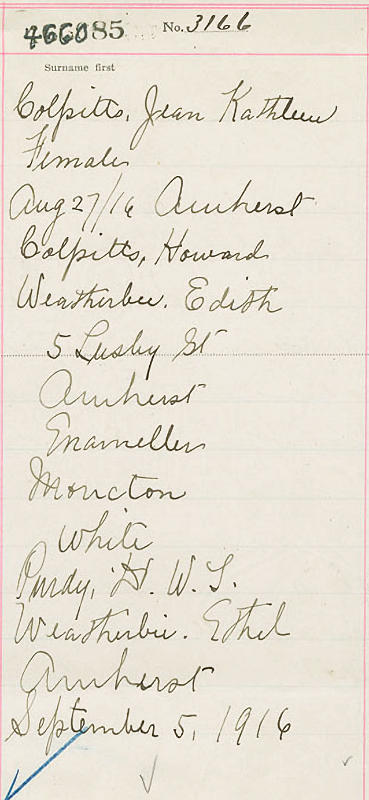 466085 No. 3166
Surname first
Colpitts, Jean Kathleen
Female
Aug 27/16 Amherst
Colpitts, Howard
Weatherbee. Edith
5 Lusby St
Amherst
Enameller
Moncton
White
Purdy, H. W. S.
Weatherbie. Ethel
Amherst
September 5, 1916